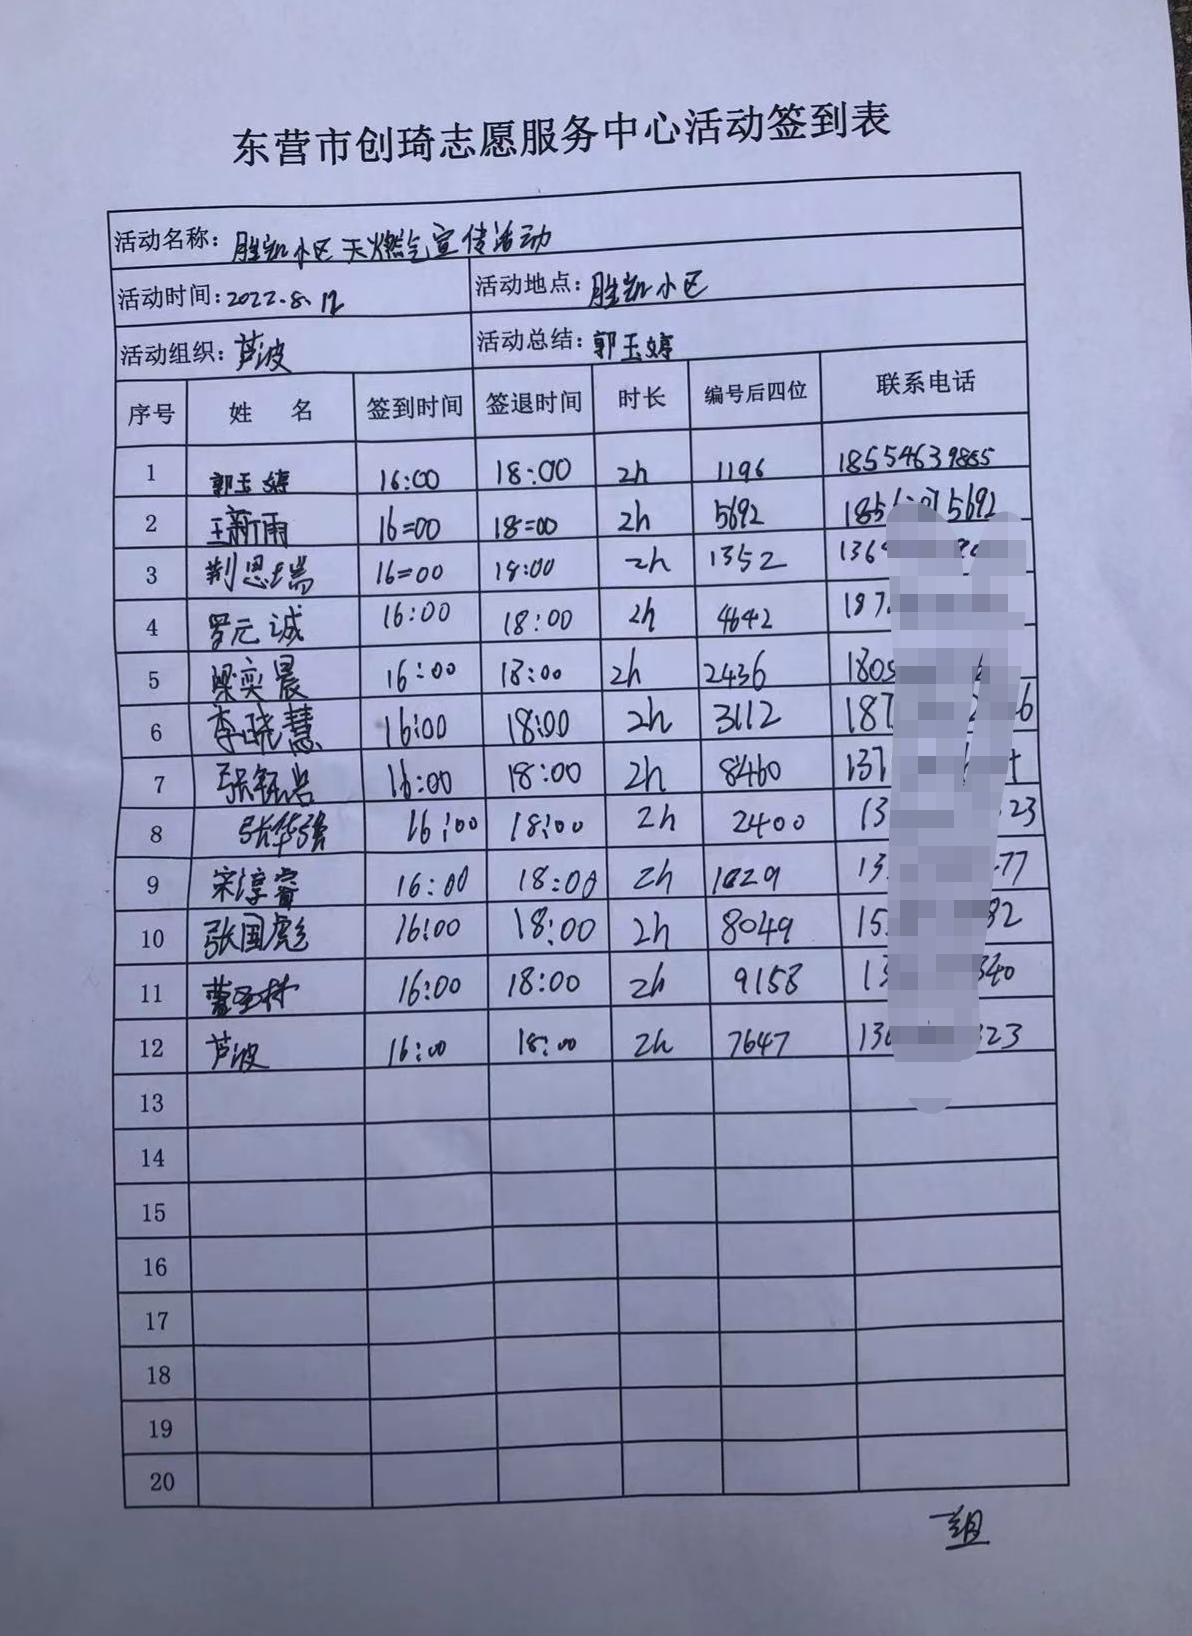 东营市创琦志愿服务中心活动签到表
活动名称：胜凯小区天燃气宣传活动
活动时间：2022.8.12 活动地点：胜凯小区
活动组织：芦波 活动总结：郭玉婷
序号 姓 名 签到时间 签退时间 时长 编号后四位 联系电话
1 郭玉婷 16:00 18:00 2h 1196 18554639865
2 王新雨 16=00 18=00 2h 5692
3 荆恩瑞 16=00 18:00 2h 1352
4 罗元诚 16:00 18:00 2h 4642
5 梁奕晨 16:00 18:00 2h 2436
6 李晓慧 16:00 18:00 2h 3112
7 16:00 18:00 2h 8460
8 张华强 16:00 18:00 2h 2400
9 宋淳睿 16:00 18:00 2h 1829
10 张国彪 16:00 18:00 2h 8049
11 16:00 18:00 2h 9158
12 芦波 16:00 18:00 2h 7647
13
14
15
16
17
18
19
20
一组